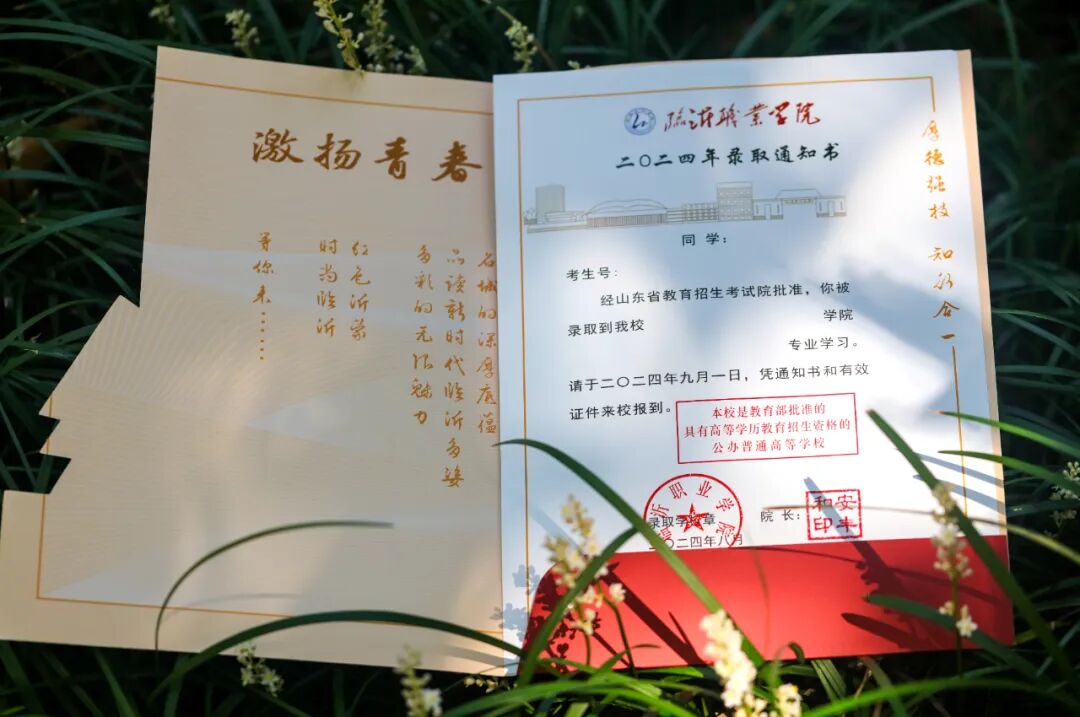 激扬青春
名城的深厚底蕴
品读新时代临沂多姿
多彩的无限魅力
红色沂蒙
时尚临沂
等你来……
临沂职业学院
二〇二四年录取通知书
厚德强技 知行合一
同学：
考生号：
经山东省教育招生考试院批准，你被
录取到我校 学院
专业学习。
请于二〇二四年九月一日，凭通知书和有效
证件来校报到。
本校是教育部批准的
具有高等学历教育招生资格的
公办普通高等学校
临沂职业学院
录取学校章
院长：
安丰和印
二〇二四年八月